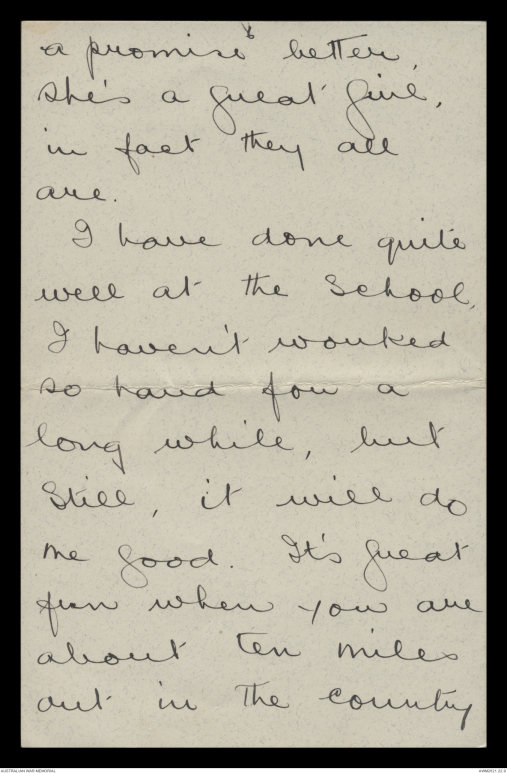 a promise better,
she's a great girl,
in fact they all
are.
I have done quite
well at the School,
I haven't worked
so hard for a
long while, but
Still, it will do
me good. It's great
fun when you are
about ten miles
out in the country
AUSTRALIAN WAR MEMORIAL
AWM2021.22.5